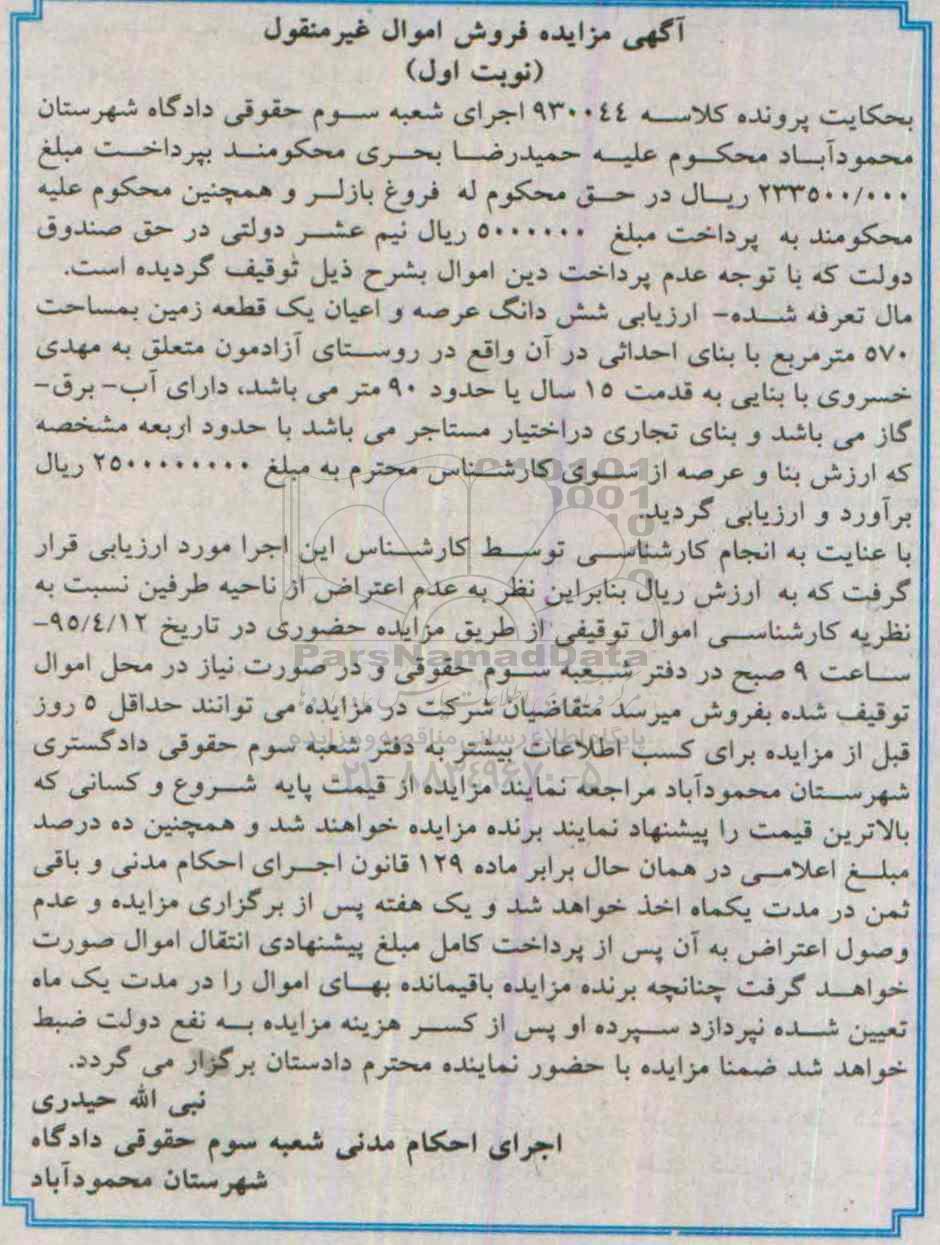 آگهی مزایده فروش اموال غیرمنقول
(نوبت اول)
بحکایت پرونده کلاسه ۹۳۰۰٤٤ اجرای شعبه سوم حقوقی دادگاه شهرستان
محمودآباد محکوم علیه حمیدرضا بحری محکومند بپرداخت مبلغ
۲۳۳۵۰۰/۰۰۰ ریال در حق محکوم له فروغ بازلر و همچنین محکوم علیه
محکومند به پرداخت مبلغ ۵۰۰۰۰۰۰ ریال نیم عشر دولتی در حق صندوق
دولت که با توجه عدم پرداخت دین اموال بشرح ذیل توقیف گردیده است.
مال تعرفه شده- ارزیابی شش دانگ عرصه و اعیان یک قطعه زمین بمساحت
۵۷۰ مترمربع با بنای احداثی در آن واقع در روستای آزادمون متعلق به مهدی
خسروی با بنایی به قدمت ۱۵ سال یا حدود ۹۰ متر می باشد، دارای آب- برق-
گاز می باشد و بنای تجاری دراختیار مستاجر می باشد با حدود اربعه مشخصه
که ارزش بنا و عرصه از سوی کارشناس محترم به مبلغ ۲۵۰۰۰۰۰۰۰۰ ریال
برآورد و ارزیابی گردید.
با عنایت به انجام کارشناسی توسط کارشناس این اجرا مورد ارزیابی قرار
گرفت که به ارزش ریال بنابراین نظر به عدم اعتراض از ناحیه طرفین نسبت به
نظریه کارشناسی اموال توقیفی از طریق مزایده حضوری در تاریخ ۹۵/٤/۱۲-
ساعت ۹ صبح در دفتر شعبه سوم حقوقی و در صورت نیاز در محل اموال
توقیف شده بفروش میرسد متقاضیان شرکت در مزایده می توانند حداقل ۵ روز
قبل از مزایده برای کسب اطلاعات بیشتر به دفتر شعبه سوم حقوقی دادگستری
شهرستان محمودآباد مراجعه نمایند مزایده از قیمت پایه شروع و کسانی که
بالاترین قیمت را پیشنهاد نمایند برنده مزایده خواهند شد و همچنین ده درصد
مبلغ اعلامی در همان حال برابر ماده ۱۲۹ قانون اجرای احکام مدنی و باقی
ثمن در مدت یکماه اخذ خواهد شد و یک هفته پس از برگزاری مزایده و عدم
وصول اعتراض به آن پس از پرداخت کامل مبلغ پیشنهادی انتقال اموال صورت
خواهد گرفت چنانچه برنده مزایده باقیمانده بهای اموال را در مدت یک ماه
تعیین شده نپردازد سپرده او پس از کسر هزینه مزایده به نفع دولت ضبط
خواهد شد ضمنا مزایده با حضور نماینده محترم دادستان برگزار می گردد.
نبی الله حیدری
اجرای احکام مدنی شعبه سوم حقوقی دادگاه
شهرستان محمودآباد
ParsNamadData
پایگاه اطلاع رسانی مناقصه و مزایده
۰۲۱-۸۸۳۴۹۶۷۰-۵